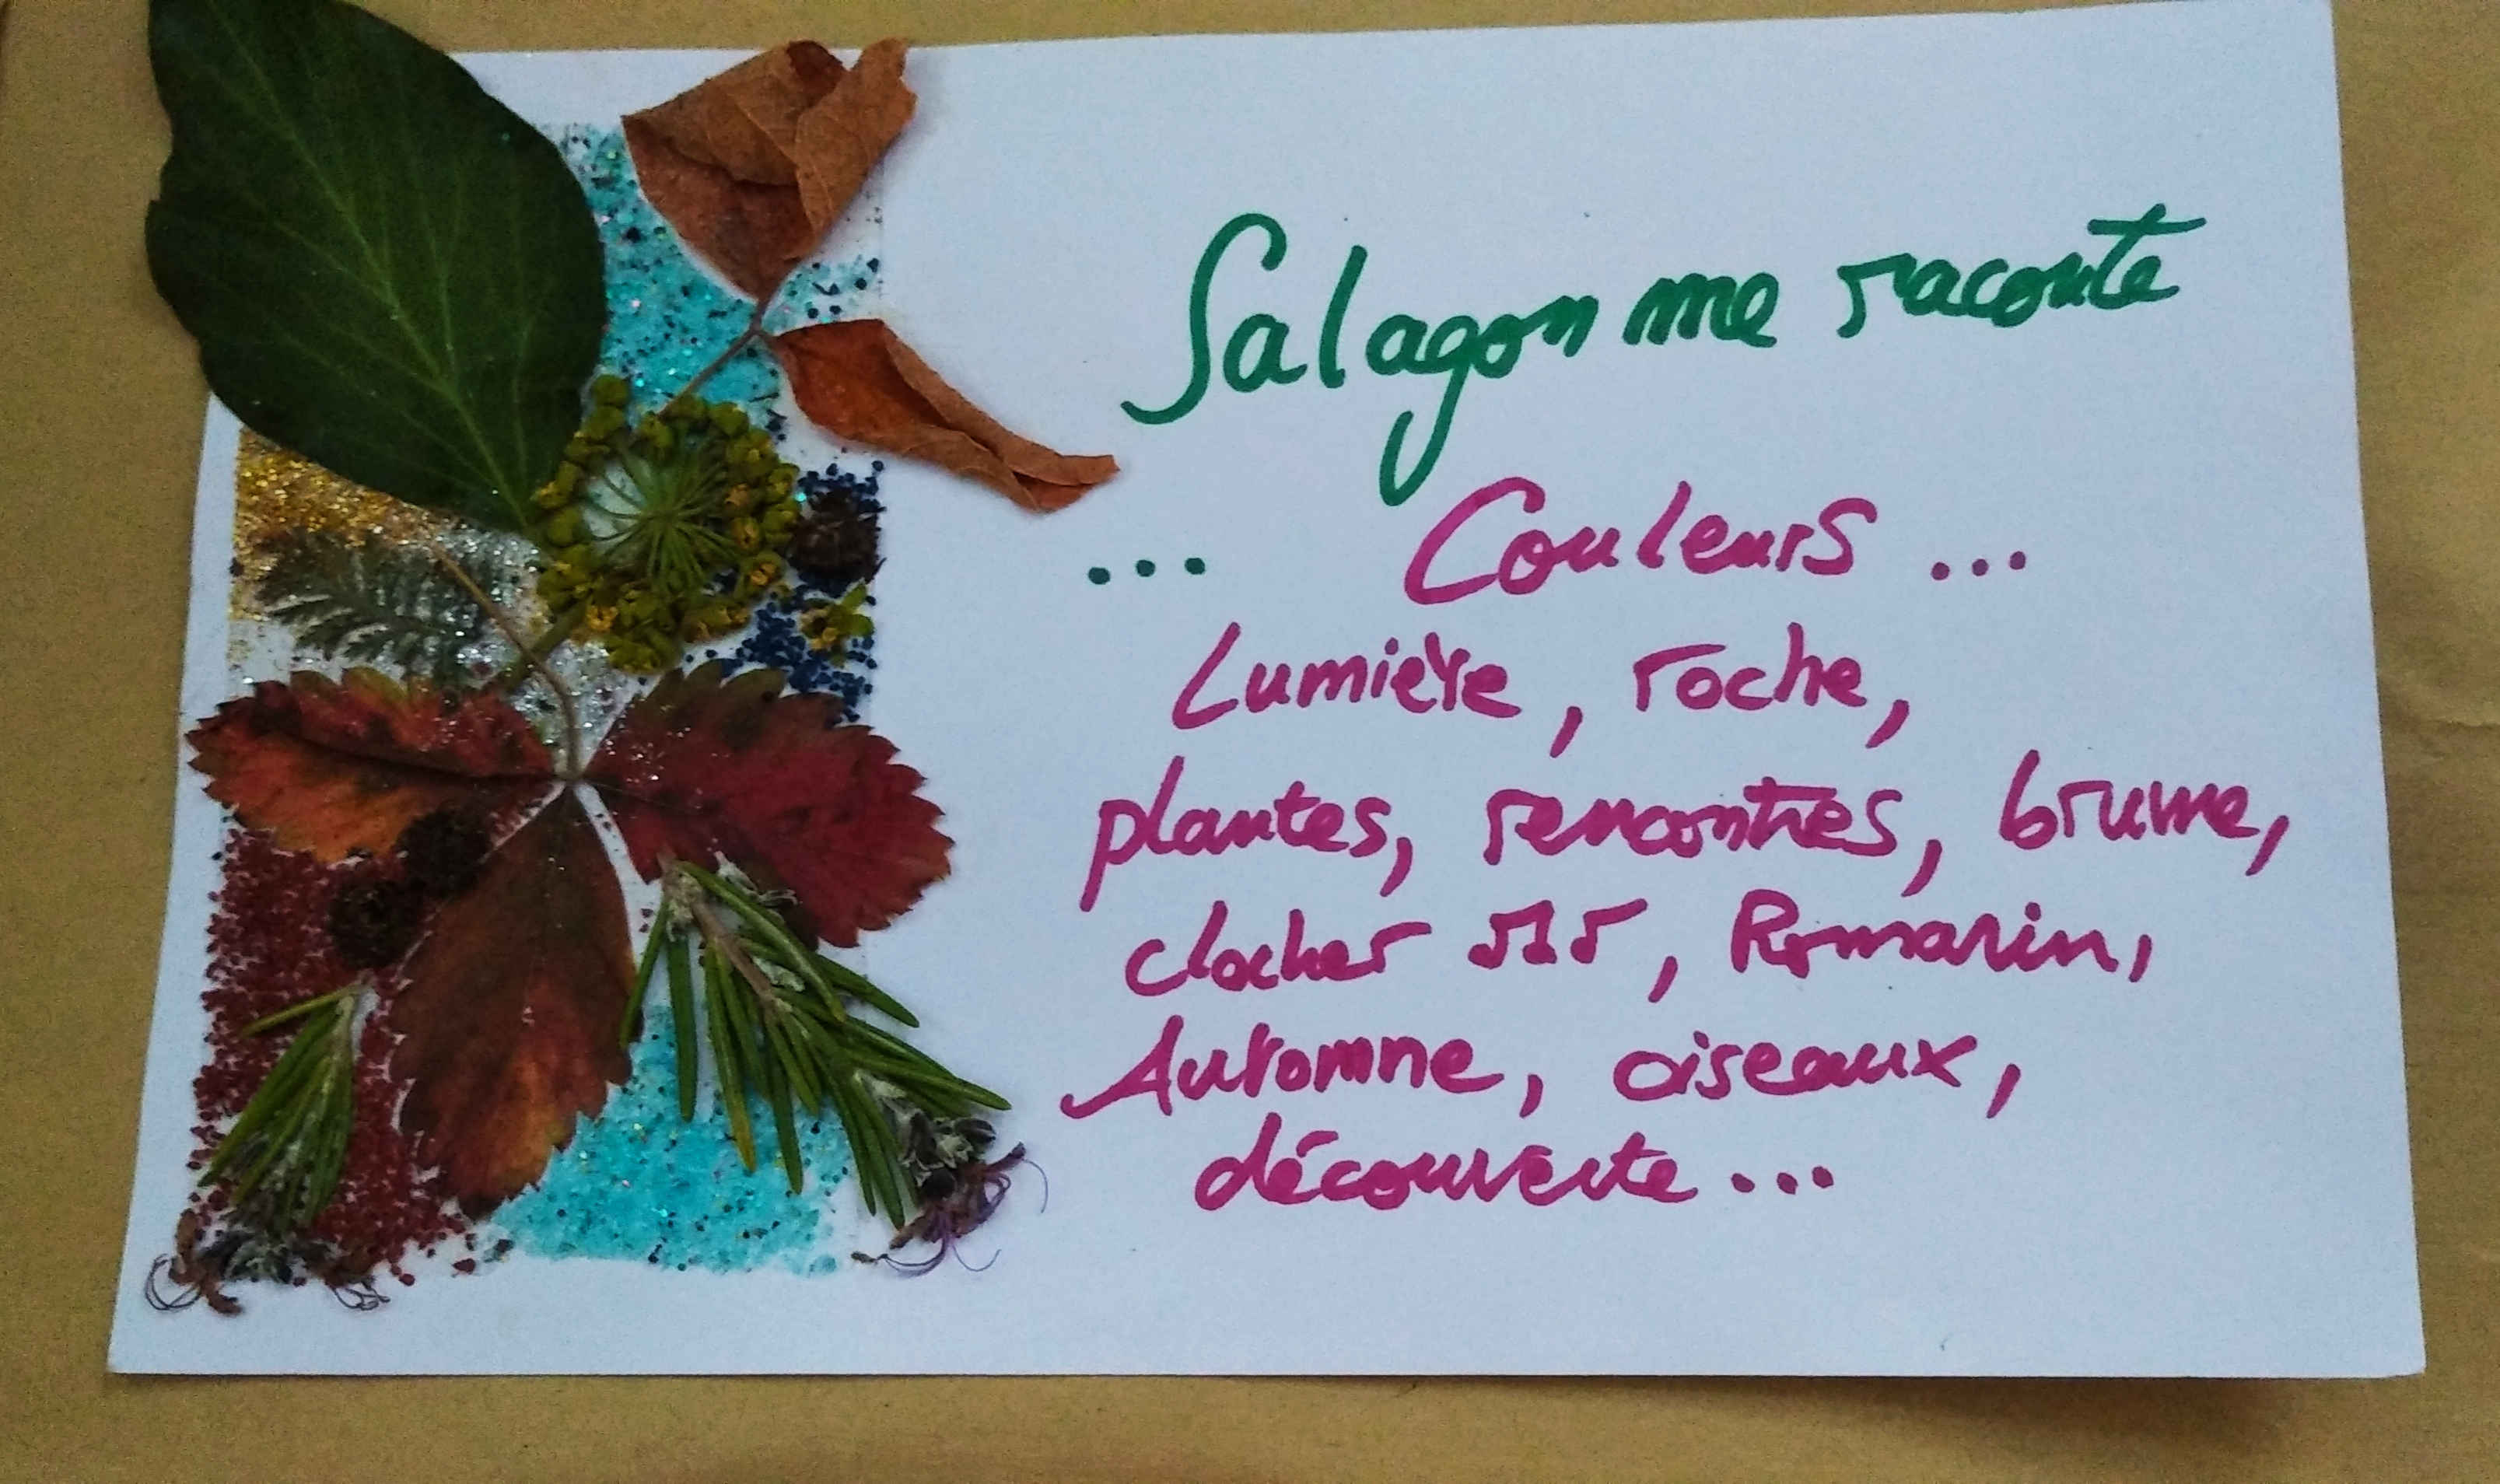 Salagon me raconte
... Couleurs ...
Lumière, roche,
plantes, rencontres, brume,
clocher, Romarin,
Automne, oiseaux,
découverte...